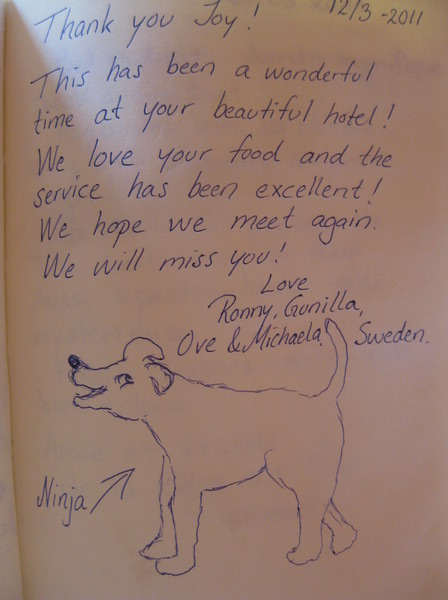 12/3-2011
Thank you Joy!
This has been a wonderful
time at your beautiful hotel!
We love your food and the
service has been excellent!
We hope we meet again.
We will miss you!
Love
Ronny, Gunilla,
Ove & Michaela, Sweden.
Ninja